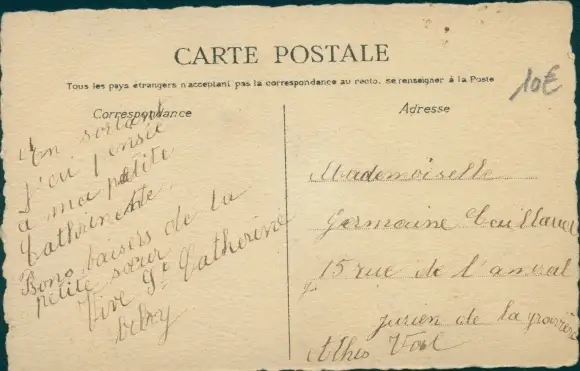 CARTE POSTALE
Tous les pays étrangers n'acceptant pas la correspondance au recto, se renseigner à la Poste
10€
Correspondance
En sortant
J'ai pensé
a ma petite
Cathrinette
Bons baisers de la
petite sœur
Vive St Catherine
Adresse
Mademoiselle
Germaine
15 rue de l'amiral
jurien de la